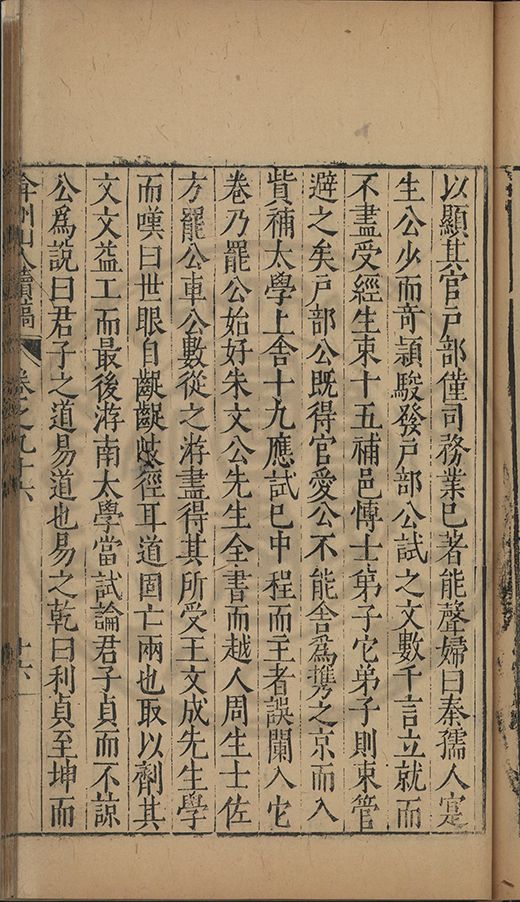 以顯其官戶部僅司務業已著能聲婦曰秦孺人寔
生公少而竒頴駿發戶部公試之文數千言立就而
不盡受經生束十五補邑博士弟子它弟子則束管
避之矣戶部公既得官愛公不能舍爲携之京而入
貲補太學上舍十九應試已中程而主者誤闌入它
卷乃罷公始好朱文公先生全書而越人周生士佐
方罷公車公數從之游盡得其所受王文成先生學
而嘆曰世眼自齷齪歧徑耳道固亡兩也取以劑其
文文益工而最後游南太學當試論君子貞而不諒
公爲說曰君子之道易道也易之乾曰利貞至坤而
弇州山人續稿 卷之九十六 十六